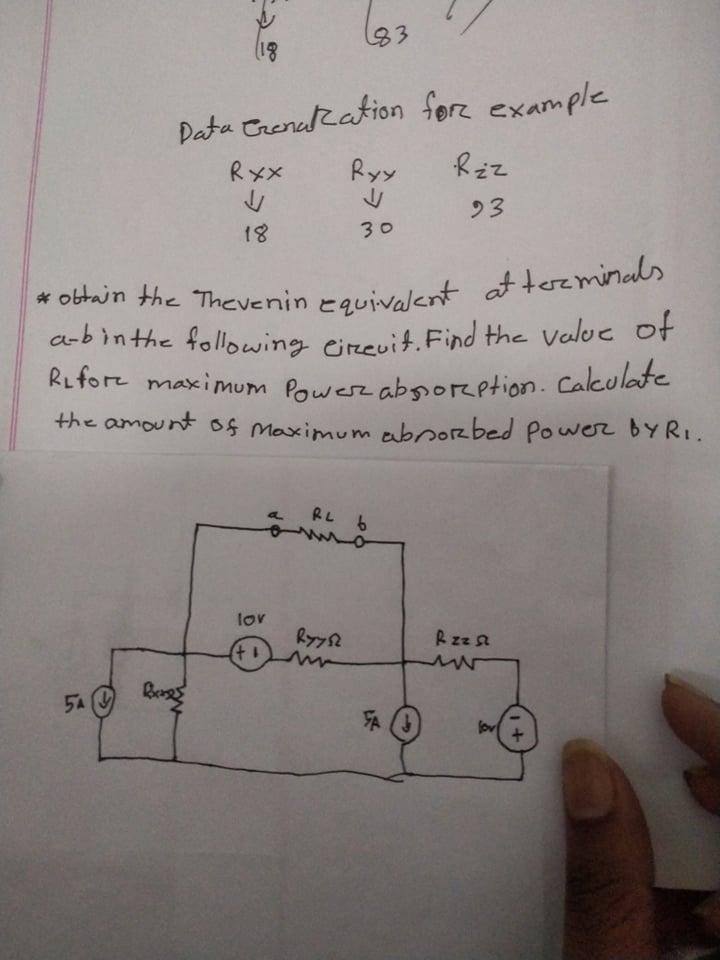 18 83
Data Generation for example
Rxx Ryy Rzz
18 30 93
* obtain the Thevenin equivalent at terminals
a-b in the following circuit. Find the value of
RL for maximum Power absorption. Calculate
the amount of Maximum absorbed Power by RL.
a RL b
10v
RyyΩ RzzΩ
5A RxxΩ
5A 10v